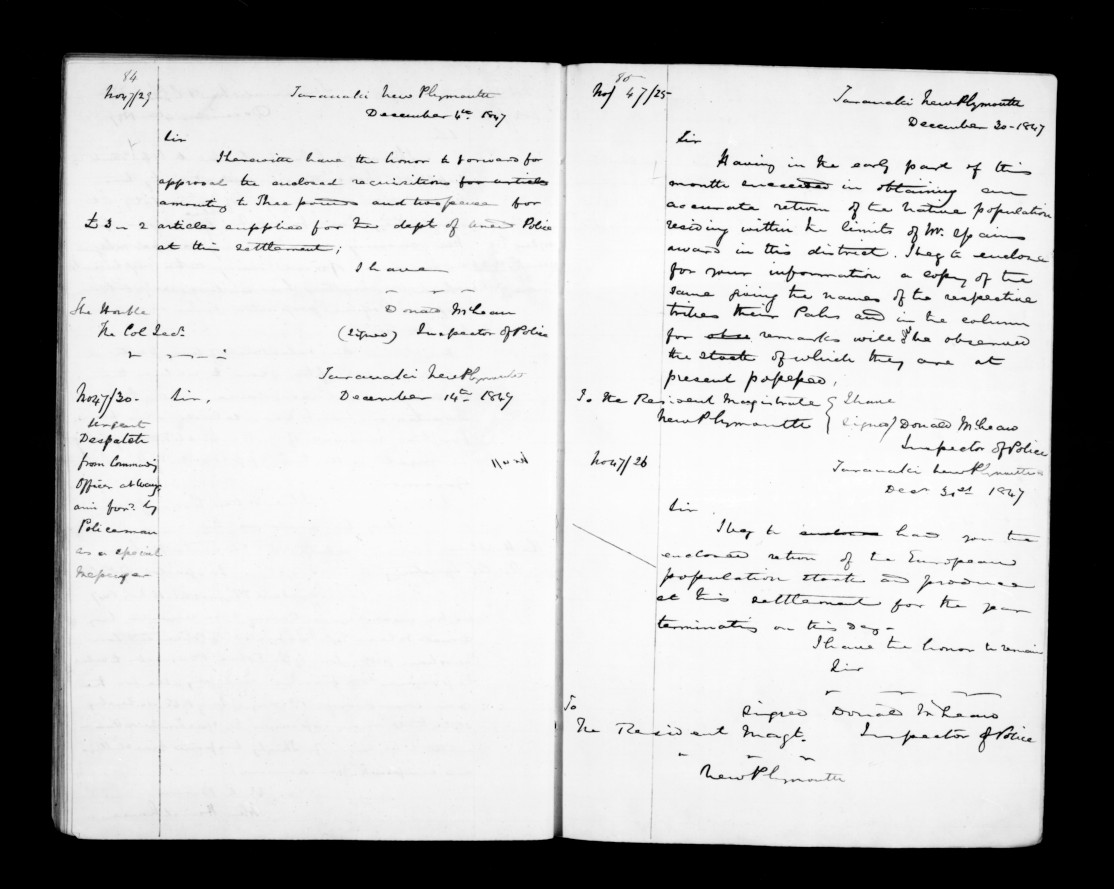 84
No 47/29
Taranaki New Plymouth
December 4th 1847
Sir
I herewith have the honor to forward for
approval the enclosed requisitions for articles
amounting to Three pounds and twopence for
£3 - 2 articles supplied for the dept of armed Police
at this settlement;
I have
Donald McLean
(signed) Inspector of Police
The Honble
The Col Secy
Taranaki New Plymouth
No 47/30 - Sir, December 14th 1847
Urgent
Despatch
from Commandg
Officer at Wang
anui forwd by
Policeman
as a special
Messenger
85
No 47/25
Taranaki New Plymouth
December 30 - 1847
Sir
Having in the early part of this
month succeeded in obtaining an
accurate return of the Native population
residing within the limits of Mr. Spains
award in this district. I beg to enclose
for your information a copy of the
same giving the names of the respective
tribes their Pahs and in the column
for remarks will be observed
the stock of which they are at
present possessed,
To the Resident Magistrate { I have
New Plymouth { signed/ Donald McLean
Inspector of Police
No 47/26
Taranaki New Plymouth
Decr 31st 1847
Sir
I beg to hand you the
enclosed return of the European
population stock and produce
at this settlement for the year
terminating on this day -
I have the honor to remain
Sir
signed Donald McLean
To
The Resident Magt. Inspector of Police
New Plymouth